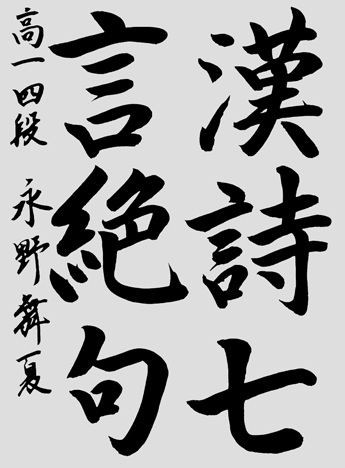 漢詩七
言絶句
高一四段 永野舞夏